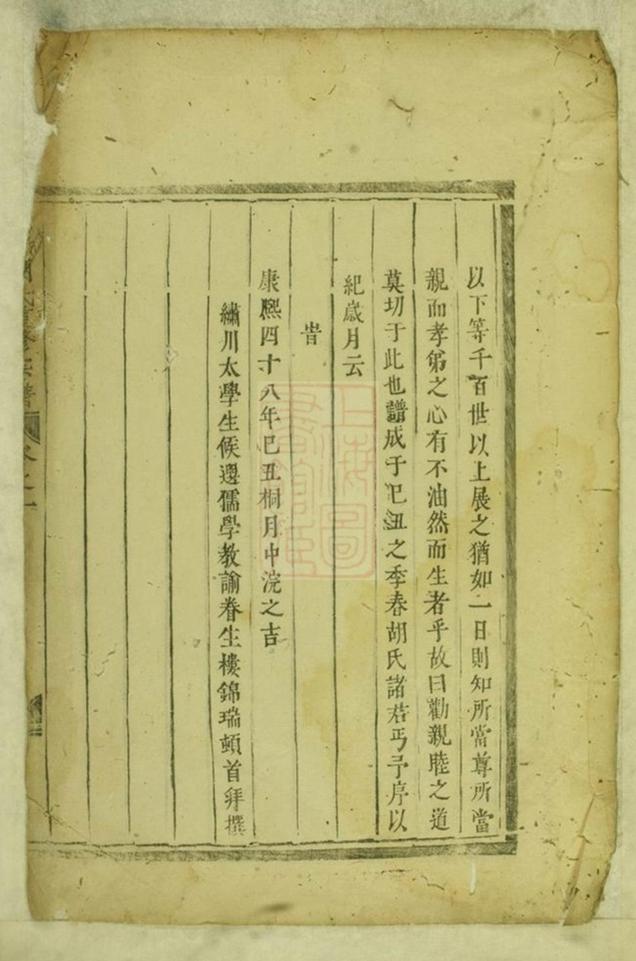 以下等千百世以上展之猶如一日則知所當尊所當
親而孝弟之心有不油然而生者乎故曰勸親睦之道
莫切于此也譜成于巳丑之季春胡氏諸君丐予序以
紀歲月云
旹
康熈四十八年巳丑桐月中浣之吉
繡川太學生候選儒學教諭眷生樓錦瑞頓首拜撰
上海圖